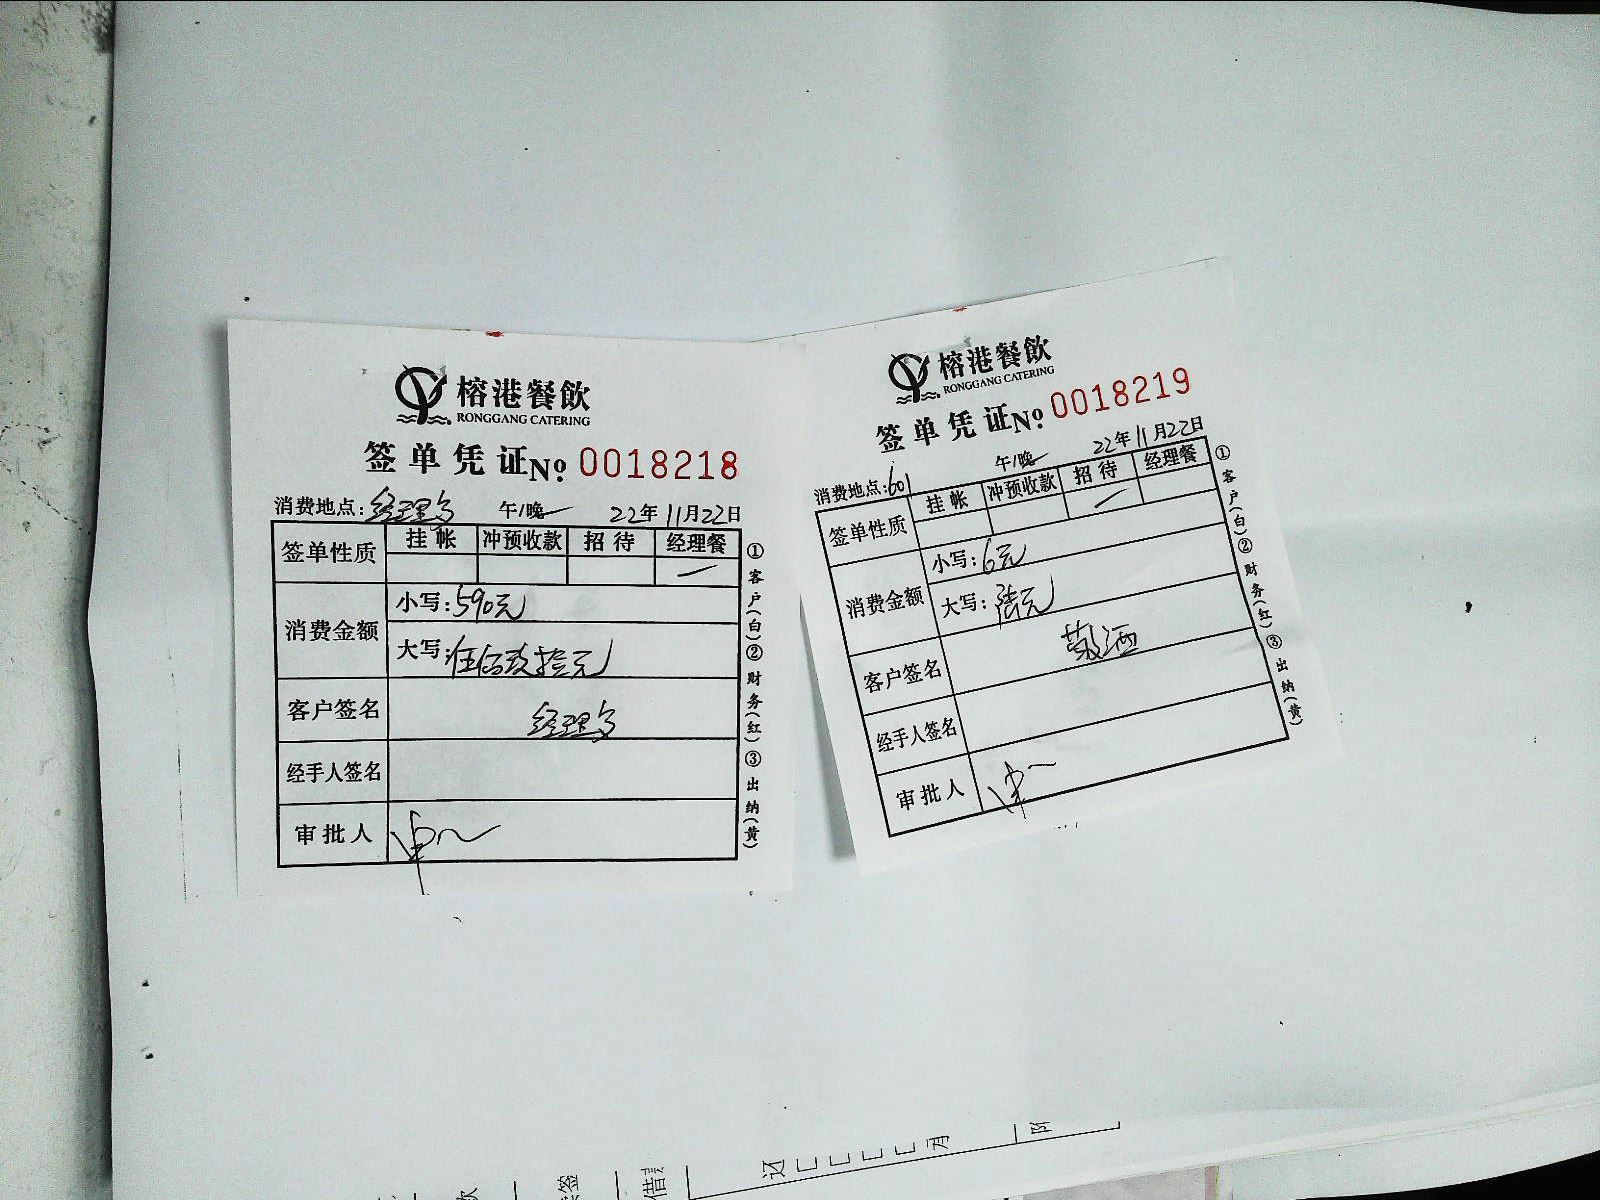 榕港餐飲
RONGGANG CATERING
签单凭证No. 0018218
消费地点: 经理 午/晚 22年11月22日
签单性质 挂帐 冲预收款 招待 经理餐
消费金额 小写: 590元
大写: 伍佰玖拾元
客户签名 经理
经手人签名
审批人
①客户(白)②财务(红)③出纳(黄)
榕港餐飲
RONGGANG CATERING
签单凭证No. 0018219
消费地点: 601 午/晚 22年11月22日
签单性质 挂帐 冲预收款 招待 经理餐
消费金额 小写: 6元
大写: 陆元
客户签名
经手人签名
审批人
①客户(白)②财务(红)③出纳(黄)